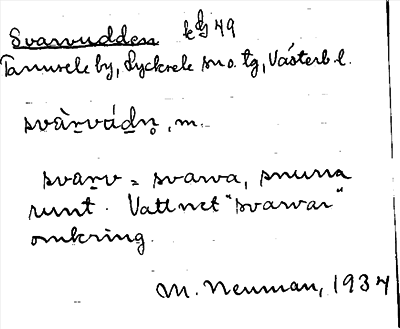 Svarvudden
Tannsele by, Lycksele sn o. tg, Västerb l.
svàrvádn, m.
svarv = svarva, snurra
runt. Vattnet "svarvar"
omkring.
M. Neuman, 1937